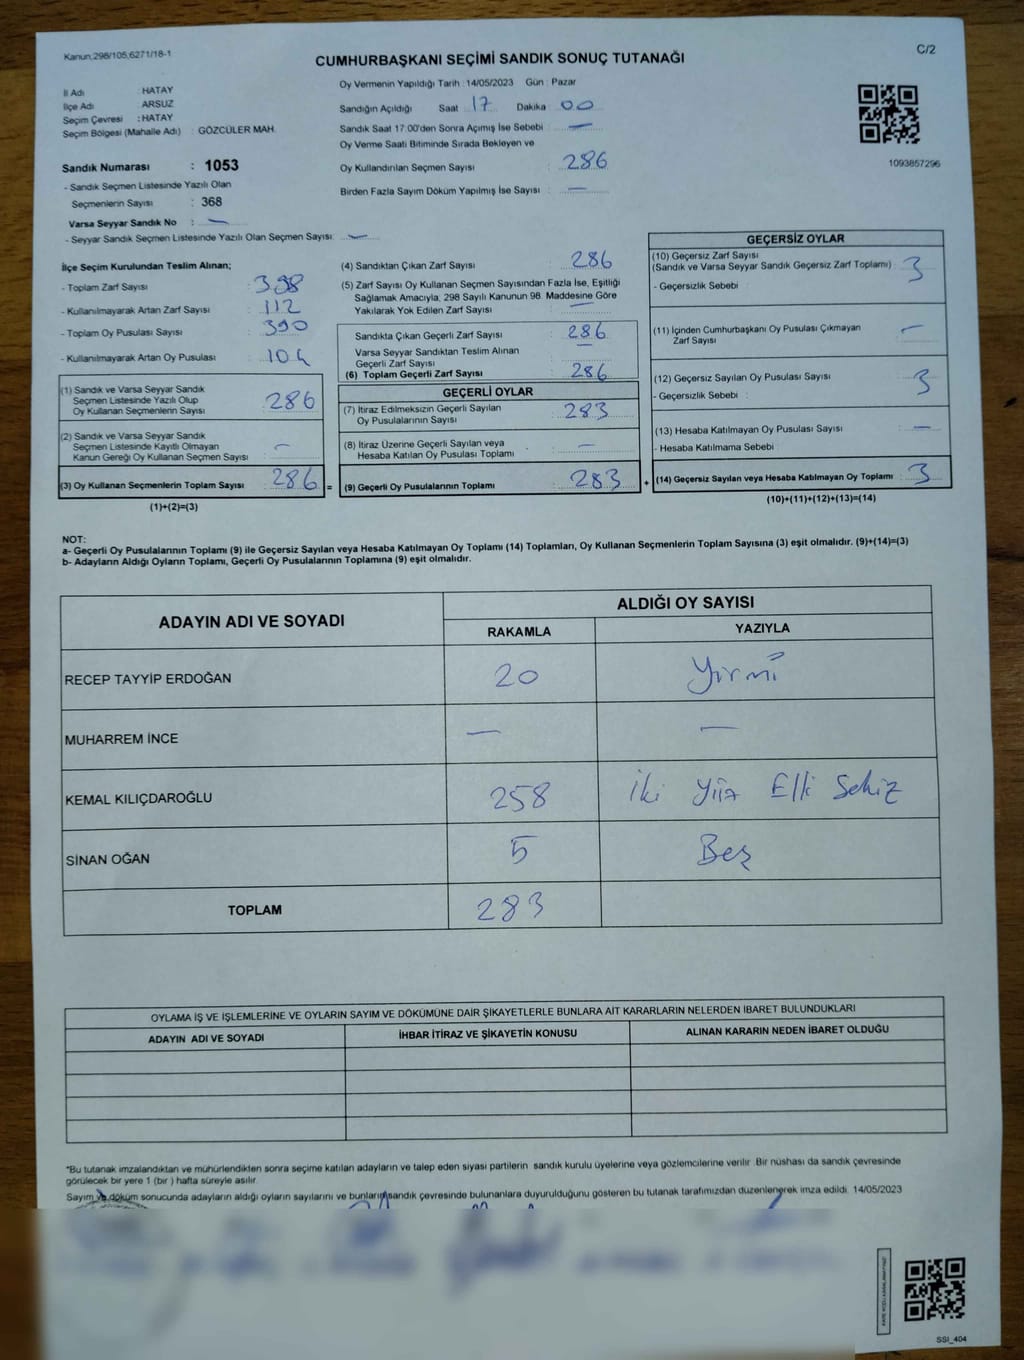 Kanun,298/105,6271/18-1
C/2
CUMHURBAŞKANI SEÇİMİ SANDIK SONUÇ TUTANAĞI
Oy Vermenin Yapıldığı Tarih : 14/05/2023 Gün : Pazar
İl Adı : HATAY
İlçe Adı : ARSUZ
Seçim Çevresi : HATAY
Seçim Bölgesi (Mahalle Adı) : GÖZCÜLER MAH.
Sandık Numarası : 1053
- Sandık Seçmen Listesinde Yazılı Olan
Seçmenlerin Sayısı : 368
Varsa Seyyar Sandık No : —
- Seyyar Sandık Seçmen Listesinde Yazılı Olan Seçmen Sayısı: —
Sandığın Açıldığı Saat 17 Dakika 00
Sandık Saat 17:00'den Sonra Açımış İse Sebebi : —
Oy Verme Saati Bitiminde Sırada Bekleyen ve
Oy Kullandırılan Seçmen Sayısı : 286
Birden Fazla Sayım Döküm Yapılmış İse Sayısı : —
1093857296
İlçe Seçim Kurulundan Teslim Alınan;
- Toplam Zarf Sayısı : 398
- Kullanılmayarak Artan Zarf Sayısı : 112
- Toplam Oy Pusulası Sayısı : 390
- Kullanılmayarak Artan Oy Pusulası : 104
(1) Sandık ve Varsa Seyyar Sandık
Seçmen Listesinde Yazılı Olup
Oy Kullanan Seçmenlerin Sayısı : 286
(2) Sandık ve Varsa Seyyar Sandık
Seçmen Listesinde Kayıtlı Olmayan
Kanun Gereği Oy Kullanan Seçmen Sayısı : —
(3) Oy Kullanan Seçmenlerin Toplam Sayısı : 286 =
(1)+(2)=(3)
(4) Sandıktan Çıkan Zarf Sayısı : 286
(5) Zarf Sayısı Oy Kullanan Seçmen Sayısından Fazla İse, Eşitliği
Sağlamak Amacıyla, 298 Sayılı Kanunun 98. Maddesine Göre
Yakılarak Yok Edilen Zarf Sayısı : —
Sandıkta Çıkan Geçerli Zarf Sayısı : 286
Varsa Seyyar Sandıktan Teslim Alınan
Geçerli Zarf Sayısı : —
(6) Toplam Geçerli Zarf Sayısı : 286
GEÇERLİ OYLAR
(7) İtiraz Edilmeksizin Geçerli Sayılan
Oy Pusulalarının Sayısı : 283
(8) İtiraz Üzerine Geçerli Sayılan veya
Hesaba Katılan Oy Pusulası Toplamı : —
(9) Geçerli Oy Pusulalarının Toplamı : 283 +
GEÇERSİZ OYLAR
(10) Geçersiz Zarf Sayısı
(Sandık ve Varsa Seyyar Sandık Geçersiz Zarf Toplamı) : 3
- Geçersizlik Sebebi :
(11) İçinden Cumhurbaşkanı Oy Pusulası Çıkmayan
Zarf Sayısı : —
(12) Geçersiz Sayılan Oy Pusulası Sayısı : 3
- Geçersizlik Sebebi :
(13) Hesaba Katılmayan Oy Pusulası Sayısı : —
- Hesaba Katılmama Sebebi :
(14) Geçersiz Sayılan veya Hesaba Katılmayan Oy Toplamı : 3
(10)+(11)+(12)+(13)=(14)
NOT:
a- Geçerli Oy Pusulalarının Toplamı (9) ile Geçersiz Sayılan veya Hesaba Katılmayan Oy Toplamı (14) Toplamları, Oy Kullanan Seçmenlerin Toplam Sayısına (3) eşit olmalıdır. (9)+(14)=(3)
b- Adayların Aldığı Oyların Toplamı, Geçerli Oy Pusulalarının Toplamına (9) eşit olmalıdır.
ADAYIN ADI VE SOYADI
ALDIĞI OY SAYISI
RAKAMLA YAZIYLA
RECEP TAYYİP ERDOĞAN 20 Yirmi
MUHARREM İNCE — —
KEMAL KILIÇDAROĞLU 258 İki Yüz Elli Sekiz
SİNAN OĞAN 5 Beş
TOPLAM 283
OYLAMA İŞ VE İŞLEMLERİNE VE OYLARIN SAYIM VE DÖKÜMÜNE DAİR ŞİKAYETLERLE BUNLARA AİT KARARLARIN NELERDEN İBARET BULUNDUKLARI
ADAYIN ADI VE SOYADI İHBAR İTİRAZ VE ŞİKAYETİN KONUSU ALINAN KARARIN NEDEN İBARET OLDUĞU
*Bu tutanak imzalandıktan ve mühürlendikten sonra seçime katılan adayların ve talep eden siyasi partilerin sandık kurulu üyelerine veya gözlemcilerine verilir. Bir nüshası da sandık çevresinde
görülecek bir yere 1 (bir ) hafta süreyle asılır.
Sayım ve döküm sonucunda adayların aldığı oyların sayılarını ve bunların sandık çevresinde bulunanlara duyurulduğunu gösteren bu tutanak tarafımızdan düzenlenerek imza edildi. 14/05/2023
SSI_404